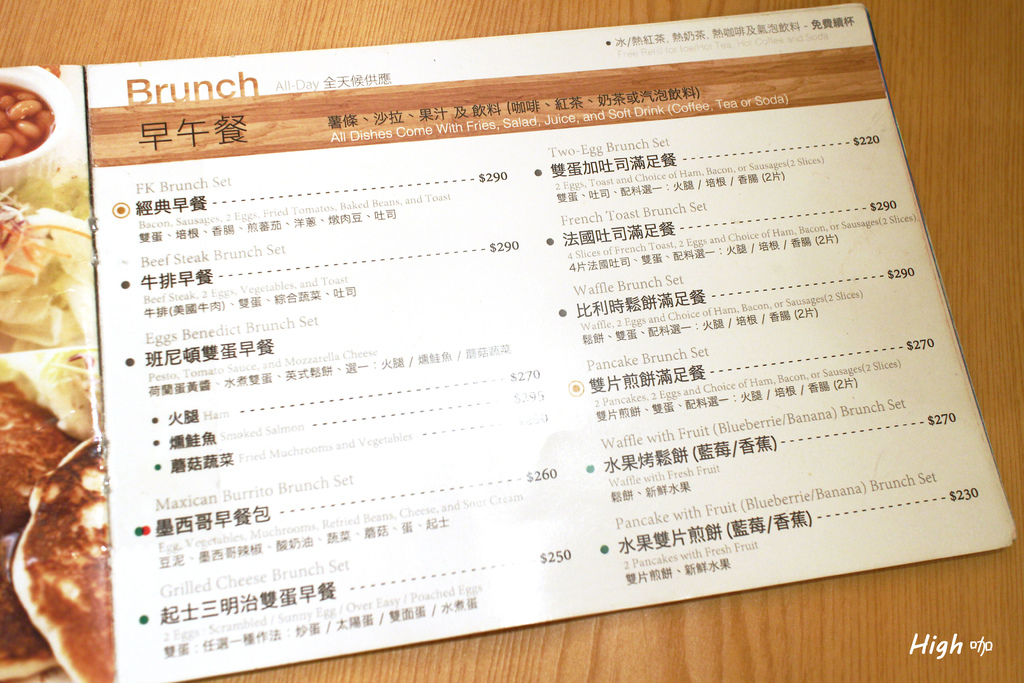 • 冰/熱紅茶, 熱奶茶, 熱咖啡及氣泡飲料 - 免費續杯
Free Refill for Ice/Hot Tea, Hot Coffee and Soda
Brunch All-Day 全天候供應
早午餐
薯條、沙拉、果汁 及 飲料 (咖啡、紅茶、奶茶或汽泡飲料)
All Dishes Come With Fries, Salad, Juice, and Soft Drink (Coffee, Tea or Soda)
FK Brunch Set
經典早餐 $290
Bacon, Sausages, 2 Eggs, Fried Tomatoes, Baked Beans, and Toast
雙蛋、培根、香腸、煎蕃茄、洋蔥、燉肉豆、吐司
Beef Steak Brunch Set
• 牛排早餐 $290
Beef Steak, 2 Eggs, Vegetables, and Toast
牛排(美國牛肉)、雙蛋、綜合蔬菜、吐司
Eggs Benedict Brunch Set
• 班尼頓雙蛋早餐
Pesto, Tomato Sauce, and Mozzarella Cheese
荷蘭蛋黃醬、水煮雙蛋、英式鬆餅、選一：火腿 / 燻鮭魚 / 蘑菇蔬菜
• 火腿 Ham $270
• 燻鮭魚 Smoked Salmon $295
• 蘑菇蔬菜 Fried Muchrooms and Vegetables
Maxican Burrito Brunch Set
• 墨西哥早餐包 $260
Egg, Vegetables, Muchrooms, Refried Beans, Cheese, and Sour Cream
豆泥、墨西哥辣椒、酸奶油、蔬菜、蘑菇、蛋、起士
Grilled Cheese Brunch Set
• 起士三明治雙蛋早餐 $250
2 Eggs : Scrambled / Sunny Egg / Over Easy / Poached Eggs
雙蛋 : 任選一種作法 : 炒蛋 / 太陽蛋 / 雙面蛋 / 水煮蛋
Two-Egg Brunch Set
• 雙蛋加吐司滿足餐 $220
2 Eggs, Toast and Choice of Ham, Bacon, or Sausages(2 Slices)
雙蛋、吐司、配料選一：火腿 / 培根 / 香腸 (2片)
French Toast Brunch Set
• 法國吐司滿足餐 $290
4 Slices of French Toast, 2 Eggs and Choice of Ham, Bacon, or Sausages(2 Slices),
4片法國吐司、雙蛋、配料選一：火腿 / 培根 / 香腸 (2片)
Waffle Brunch Set
• 比利時鬆餅滿足餐 $290
Waffle, 2 Eggs and Choice of Ham, Bacon, or Sausages(2 Slices)
鬆餅、雙蛋、配料選一：火腿 / 培根 / 香腸 (2片)
Pancake Brunch Set
雙片煎餅滿足餐 $270
2 Pancakes, 2 Eggs and Choice of Ham, Bacon, or Sausages(2 Slices)
雙片煎餅、雙蛋、配料選一：火腿 / 培根 / 香腸 (2片)
Waffle with Fruit (Blueberrie/Banana) Brunch Set
• 水果烤鬆餅 (藍莓/香蕉) $270
Waffle with Fresh Fruit
鬆餅、新鮮水果
Pancake with Fruit (Blueberrie/Banana) Brunch Set
• 水果雙片煎餅 (藍莓/香蕉) $230
2 Pancakes with Fresh Fruit
雙片煎餅、新鮮水果
High 咖